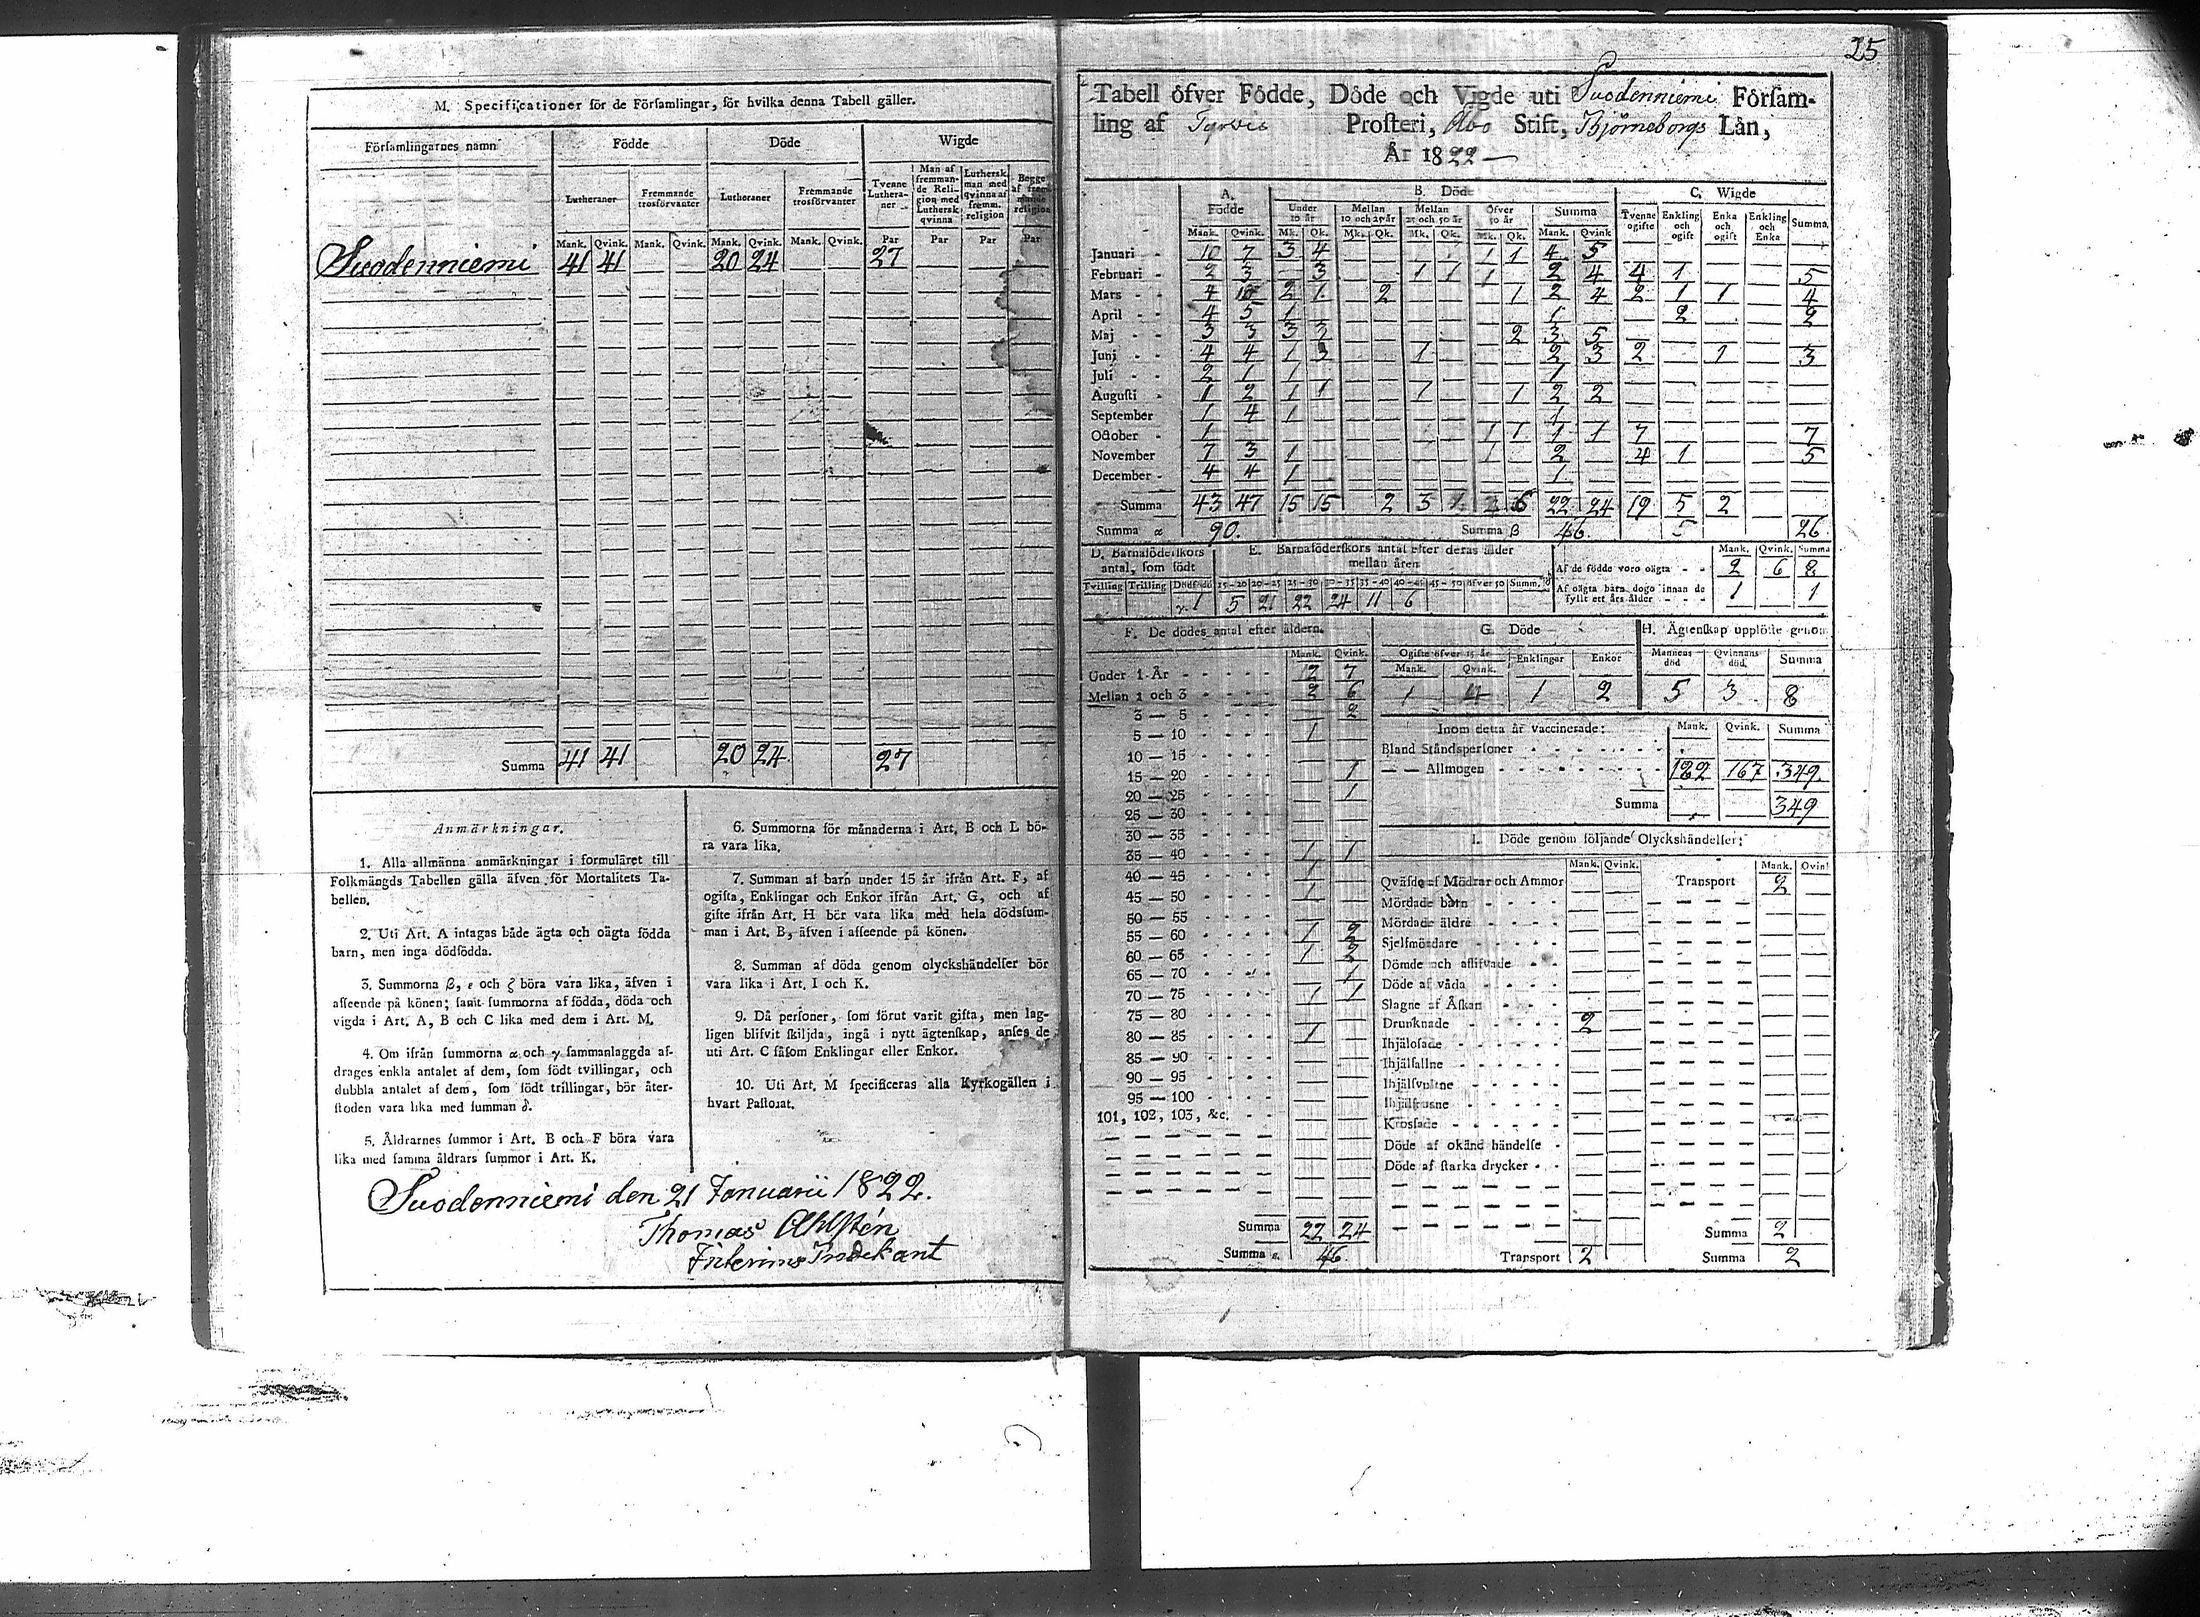 M. Specificationer för de Församlingar, för hvilka denna Tabell gäller.
Församlingarnes namn Födde Döde Wigde
Lutheraner Fremmande trosförvanter Lutheraner Fremmande trosförvanter Tvenne Lutheraner Man af fremmande Religion med Luthersk qvinna Luthersk man med qvinna af fremm. religion Begge af fremmande religion
Mank. Qvink. Mank. Qvink. Mank. Qvink. Mank. Qvink. Par Par Par Par
Suodenniemi 41 41 20 24 27
Summa 41 41 20 24 27
Anmärkningar.
1. Alla allmänna anmärkningar i formuläret till
Folkmängds Tabellen gälla äfven för Mortalitets Ta-
bellen.
2. Uti Art. A intagas både ägta och oägta födda
barn, men inga dödfödda.
3. Summorna β, ε och ζ böra vara lika, äfven i
afseende på könen; samt summorna af födda, döda och
vigda i Art. A, B och C lika med dem i Art. M.
4. Om ifrån summorna α och γ sammanlaggda af-
drages enkla antalet af dem, som födt tvillingar, och
dubbla antalet af dem, som födt trillingar, bör åter-
stoden vara lika med summan δ.
5. Åldrarnes summor i Art. B och F böra vara
lika med samma åldrars summor i Art. K.
6. Summorna för månaderna i Art. B och L bö-
ra vara lika.
7. Summan af barn under 15 år ifrån Art. F, af
ogifta, Enklingar och Enkor ifrån Art. G, och af
gifte ifrån Art. H bör vara lika med hela dödssum-
man i Art. B, äfven i afseende på könen.
8. Summan af döda genom olyckshändelser bör
vara lika i Art. I och K.
9. Då personer, som förut varit gifta, men lag-
ligen blifvit skiljda, ingå i nytt ägtenskap, anses de
uti Art. C såsom Enklingar eller Enkor.
10. Uti Art. M specificeras alla Kyrkogällen i
hvart Pastorat.
Suodenniemi den 21 Januarii 1822.
Thomas Ahlstén
25
Tabell öfver Födde, Döde och Vigde uti Suodenniemi Försam-
ling af Tyrvis Prosteri, Åbo Stift, Björneborgs Län,
År 1822
A. Födde B. Döde C. Wigde
Under 10 år Mellan 10 och 25 år Mellan 25 och 50 år Öfver 50 år Summa Tvenne ogifte Enkling och ogift Enka och ogift Enkling och Enka Summa
Mank. Qvink. Mk. Qk. Mk. Qk. Mk. Qk. Mk. Qk. Mank. Qvink
Januari 10 7 3 4 1 1 4 5
Februari 2 3 3 1 1 1 2 4 4 1 5
Mars 4 2 1 2 1 2 4 2 1 1 4
April 4 5 1 1 2 2
Maj 3 3 3 3 2 3 5
Junj 4 4 1 3 1 2 3 2 1 3
Juli 2 1 1 1
Augusti 1 2 1 1 1 1 2 2
September 1 4 1 1
October 1 1 1 1 1 7 7
November 7 3 1 1 2 4 1 5
December 4 4 1 1
Summa 43 47 15 15 2 3 1 6 22 24 19 5 2
Summa α 90. Summa β 46 5 26
D. Barnaföderskors antal, som födt
E. Barnaföderskors antal efter deras ålder mellan åren
Tvilling Trilling Dödfödd 15-20 20-25 25-30 30-35 35-40 40-45 45-50 öfver 50 Summ. δ
γ. 1 5 21 22 24 11 6
Mank. Qvink. Summa
Af de födde voro oägta 2 6 8
Af oägta barn dogo innan de fyllt ett års ålder 1 1
F. De dödes antal efter åldern.
Mank. Qvink.
Under 1 År 12 7
Mellan 1 och 3 2 6
3 — 5 2
5 — 10 1
10 — 15
15 — 20 1
20 — 25 1
25 — 30
30 — 35
35 — 40 1 1
40 — 45 1
45 — 50 1
50 — 55
55 — 60 1 2
60 — 65 1 2
65 — 70 1
70 — 75 1 1
75 — 80
80 — 85 1
85 — 90
90 — 95
95 — 100
101, 102, 103, &c.
Summa 22 24
Summa ε. 46.
G. Döde
Ogifte öfver 15 år Enklingar Enkor
Mank. Qvink.
1 4 1 2
H. Ägtenskap upplöste genom
Mannens död Qvinnans död. Summa
5 3 8
Inom detta år vaccinerade: Mank. Qvink. Summa
Bland Ståndspersoner
— — Allmogen 182 167 349.
Summa 349
I. Döde genom följande Olyckshändelser:
Mank. Qvink. Mank. Qvink
Qväfde af Mödrar och Ammor Transport 2
Mördade barn
Mördade äldre
Sjelfmördare
Dömde och aflifvade
Döde af våda
Slagne af Åskan
Drunknade 2
Ihjälosade
Ihjälfallne
Ihjälsvultne
Ihjälfrusne
Krossade
Döde af okänd händelse
Döde af starka drycker
Summa 2
Transport 2 Summa 2